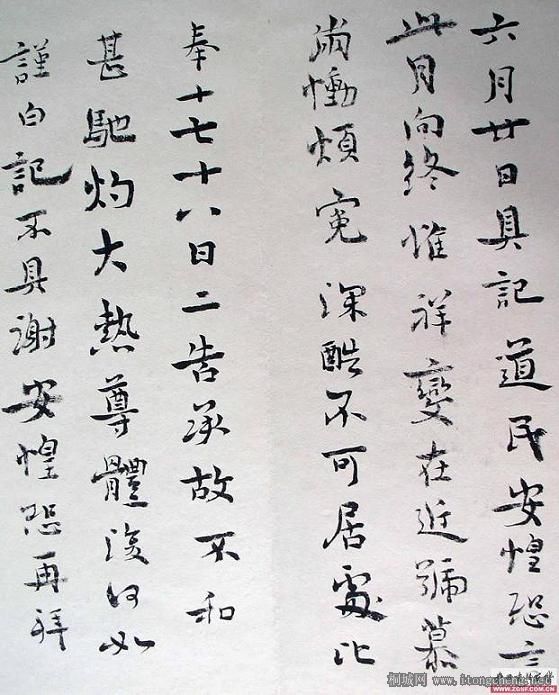 六月廿日具記道民安惶恐言
此月向終惟祥變在近號慕
崩慟煩冤深酷不可居處比
奉十七十八日二告承故不和
甚馳灼大熱尊體復何如
謹白記不具謝安惶恐再拜
桐城网 www.itongcheng.net